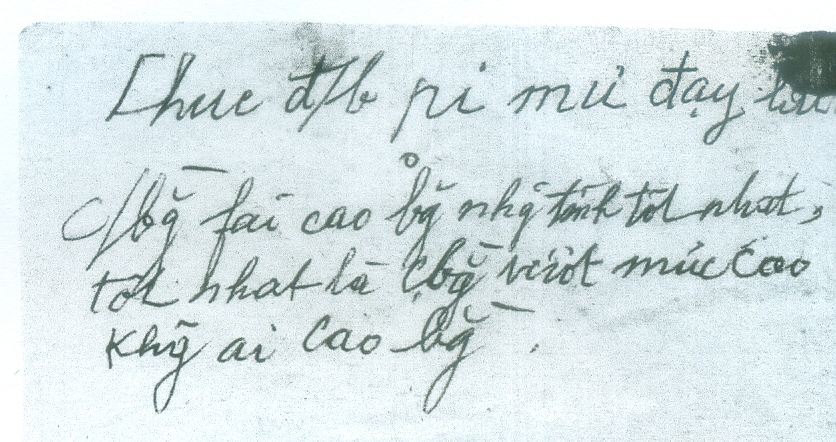 Chuc đ/b pi mứ đạy
c/bğ fai cao bğ nhğ tính tốt nhat,
tốt nhat là cbğ vượt mức cao
Khğ ai cao bğ.